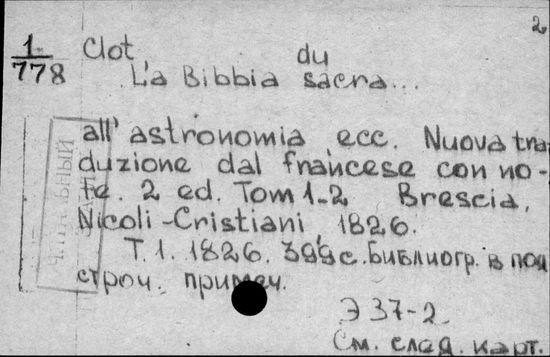 2
1/778
Clot, du
La Bibbia sacra...
all' astronomia ecc. Nuova tra-
duzione dal francese con no-
te. 2 ed. Tom 1-2 Brescia,
Nicoli-Cristiani, 1826.
T. 1. 1826. 399 с. Библиогр. в под
строч. примеч.
Э 37-2
См. след. карт.